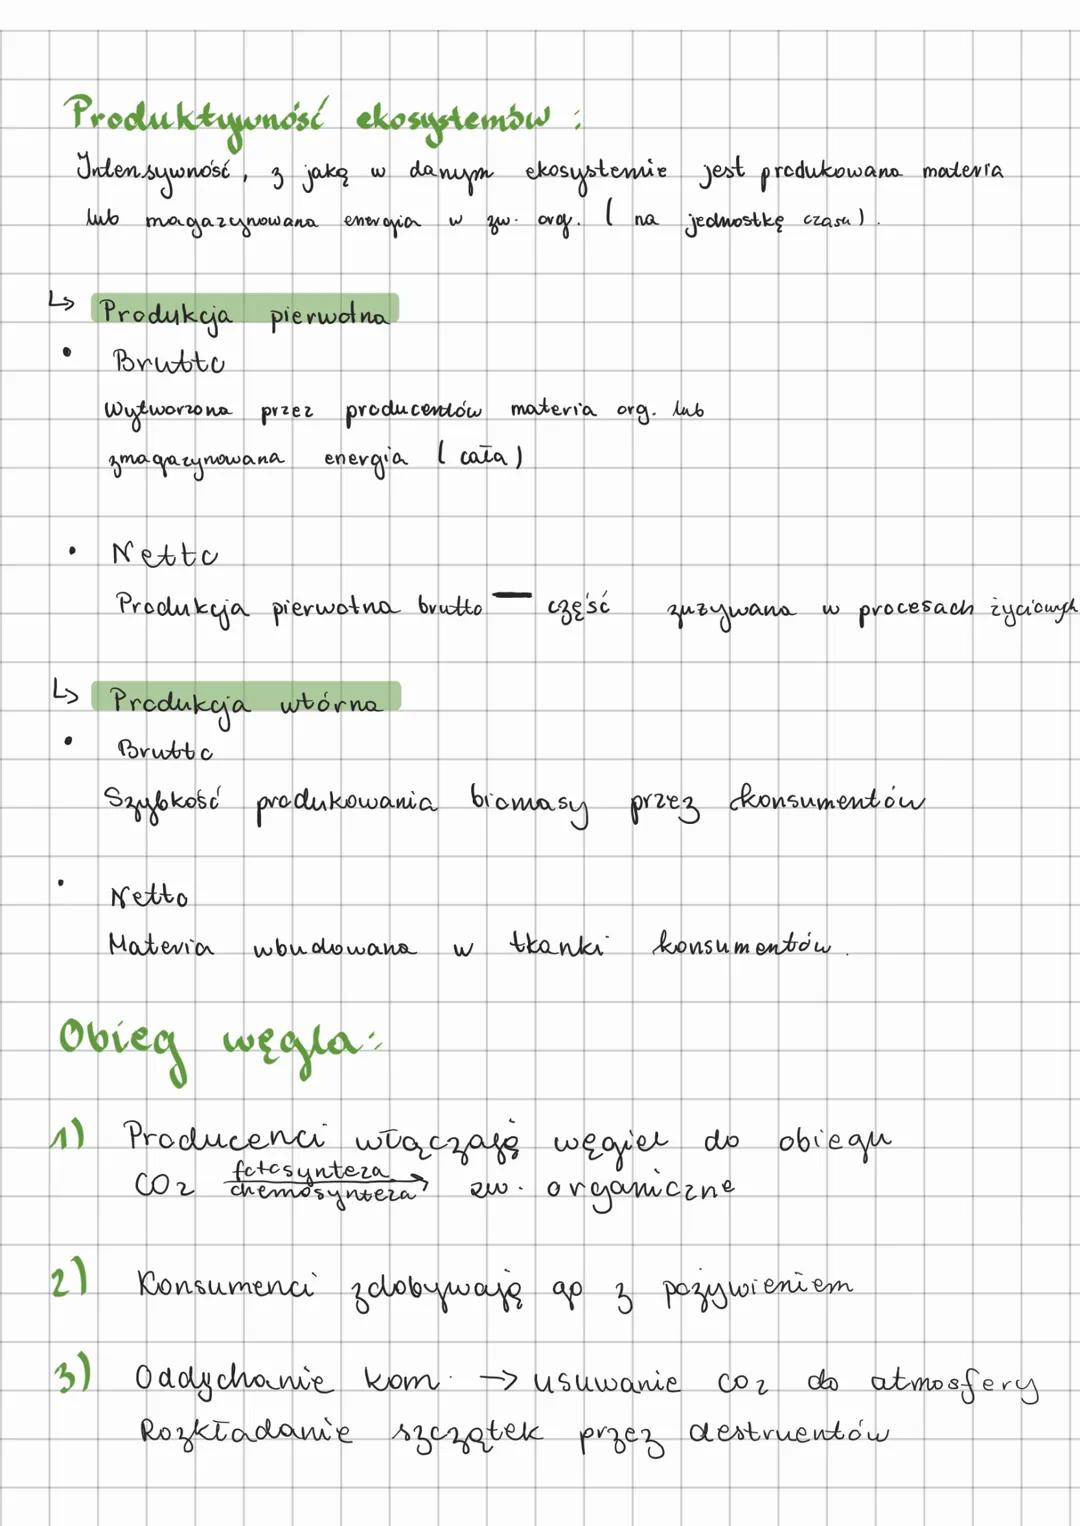 Produktywność ekosystemów :
Intensywność, z jaką w danym ekosystemie jest produkowana materia
lub magazynowana energia w zw. org. ( na jednostkę czasu ) .
↳ Produkcja pierwotna
• Brutto
Wytworzona przez producentów materia org. lub
zmagazynowana energia ( cała )
• Netto
Produkcja pierwotna brutto — część zużywana w procesach życiowych
↳ Produkcja wtórna
• Brutto
Szybkość produkowania biomasy przez konsumentów
• Netto
Materia wbudowana w tkanki konsumentów .
Obieg węgla:
1) Producenci włączają węgiel do obiegu
fotosynteza
CO2 → zw. organiczne
chemosynteza
2) Konsumenci zdobywają go z pożywieniem
3) Oddychanie kom. → usuwanie CO2 do atmosfery
Rozkładanie szczątek przez destruentów